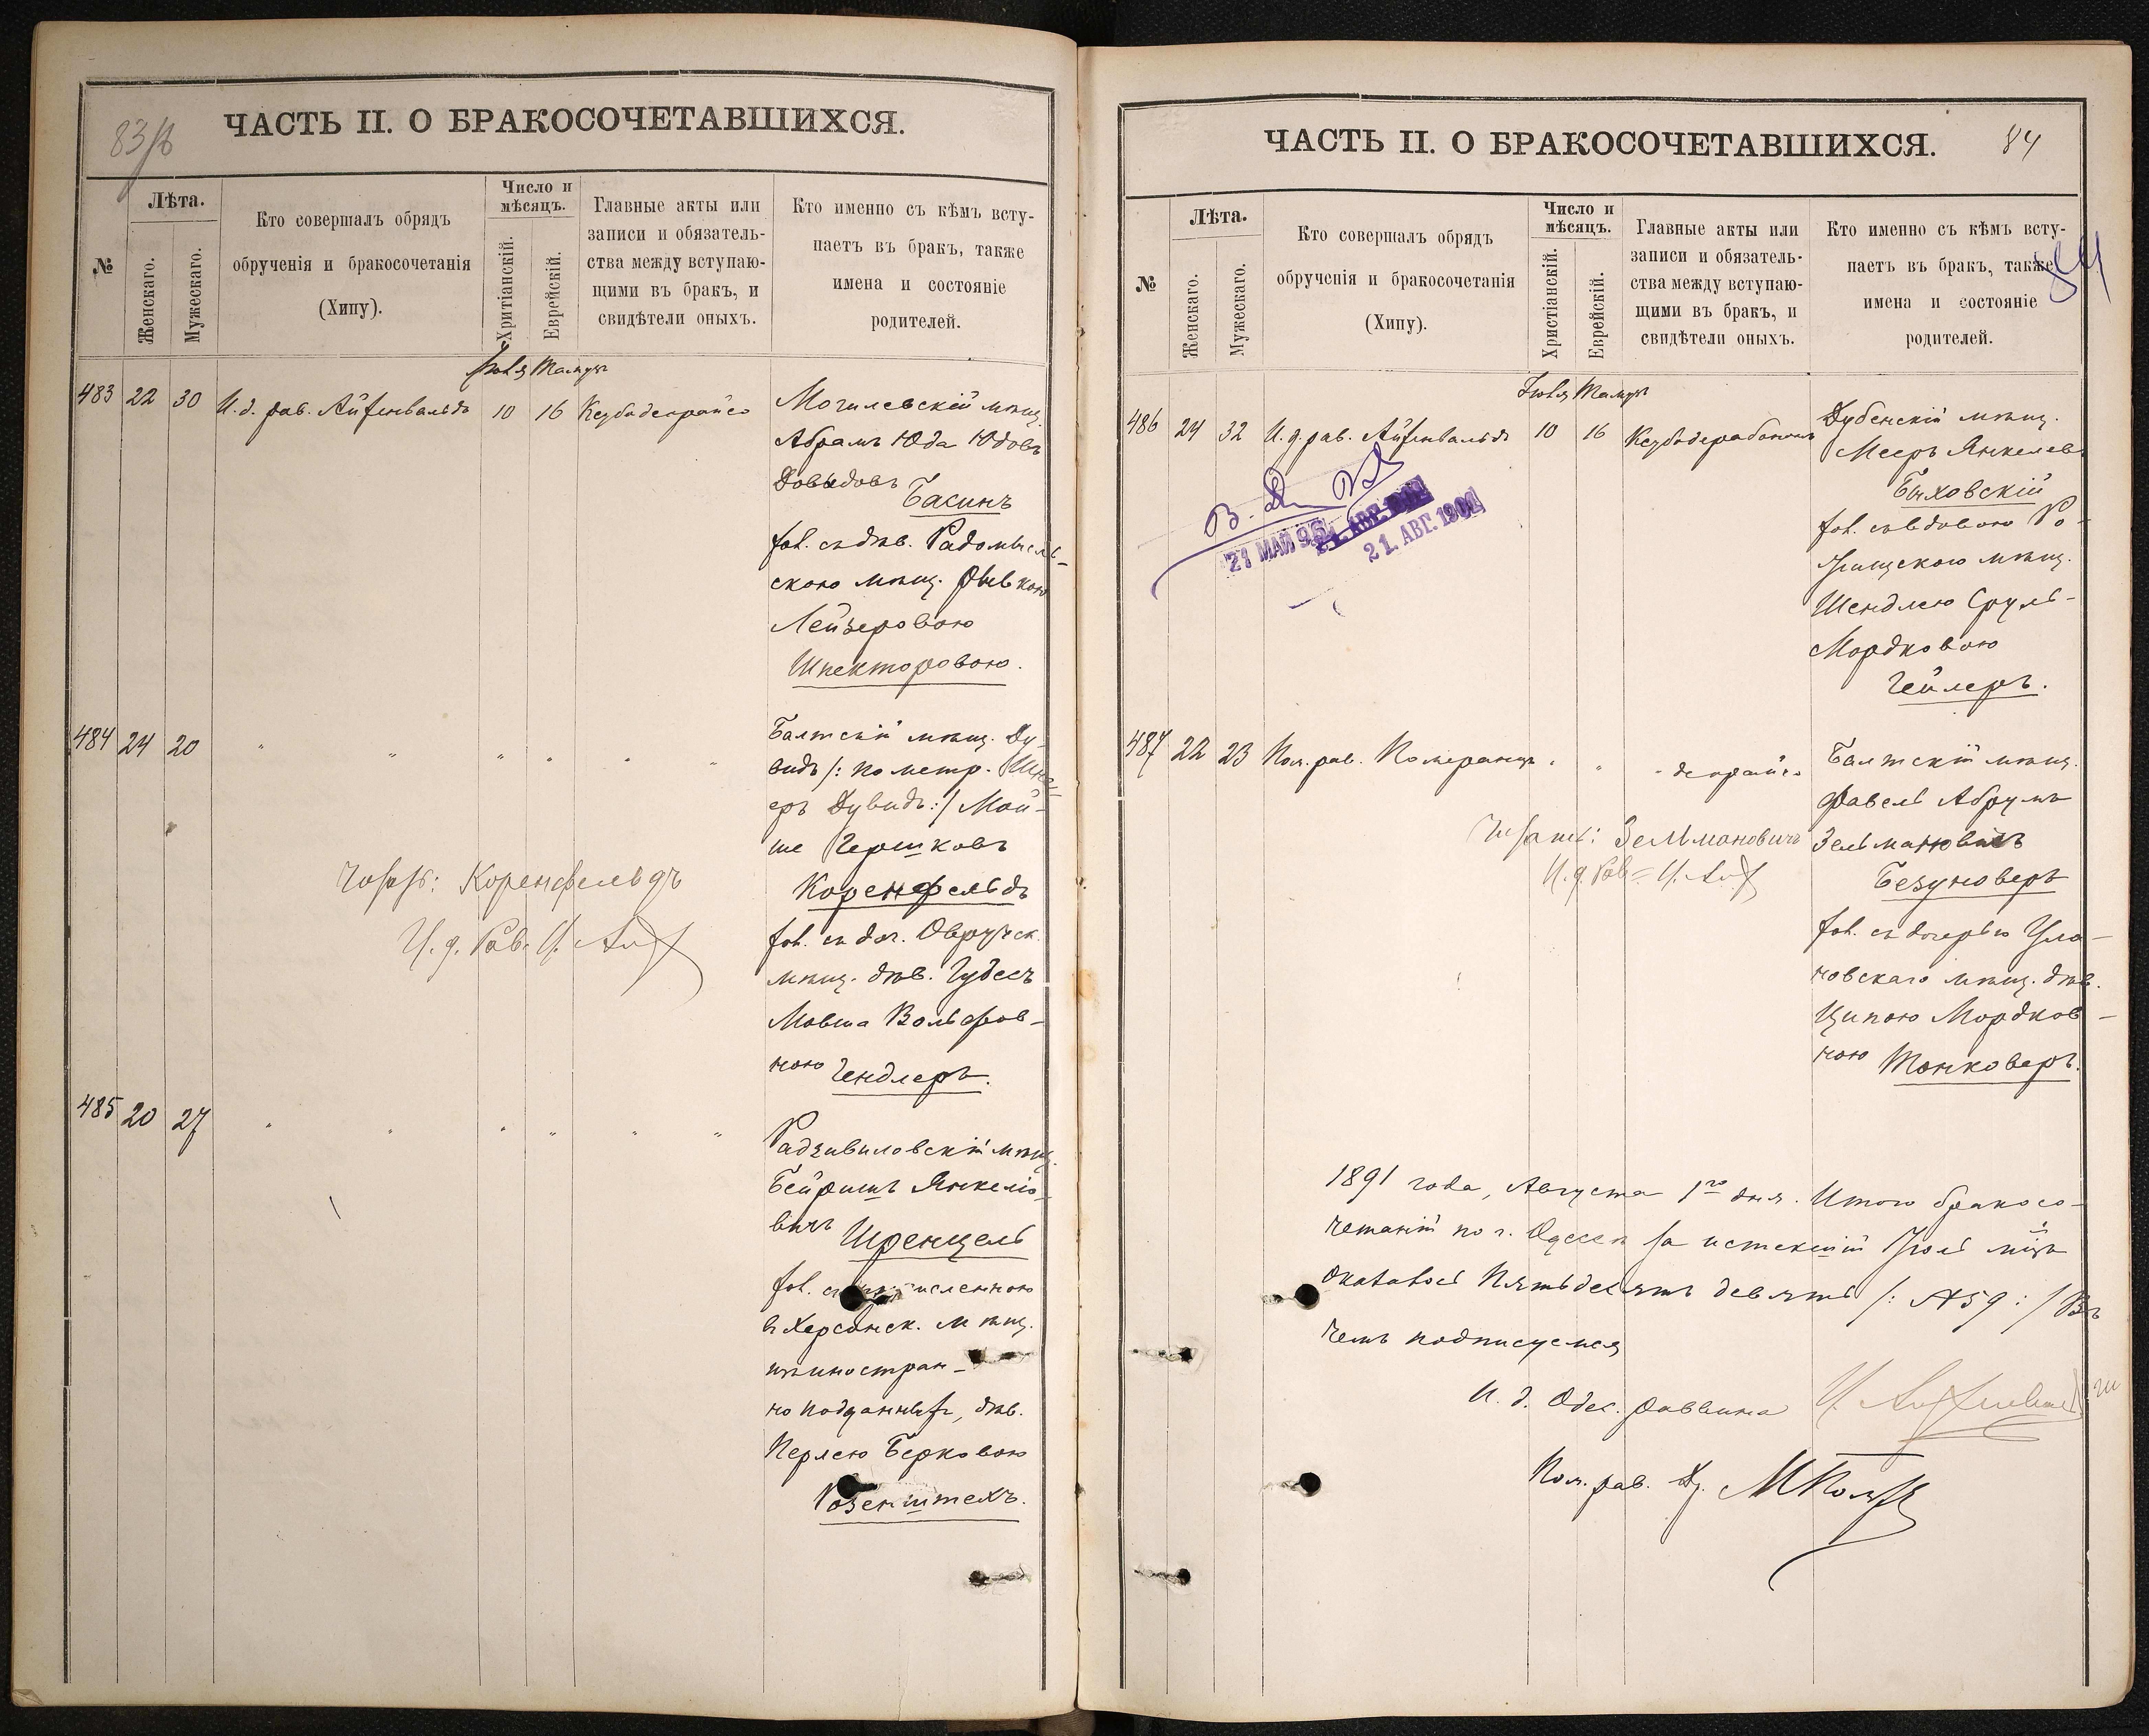 83 об
ЧАСТЬ II. О БРАКОСОЧЕТАВШИХСЯ.
№
Лѣта.
Женскаго.
Мужескаго.
Кто совершалъ обрядъ
обрученія и бракосочетанія
(Хипу).
Число и
мѣсяцъ.
Хритіанскій.
Еврейскій.
Главные акты или
записи и обязатель-
ства между вступаю-
щими въ бракъ, и
свидѣтели оныхъ.
Кто именно съ кѣмъ всту-
паетъ въ бракъ, также
имена и состояніе
родителей.
Іюля Тамузъ
483 22 30 И.д. рав. Айзенвальдъ 10 16
Могилевскій мѣщ.
Абрамъ Юда Юдовъ
Довыдовъ
Басинъ
съ дѣв. Радомысль-
скою мѣщ. Рывкою
Лейзеровою
Шпекторовою.
484 24 20 " " " " " "
Балтскій мѣщ. Ду-
видъ /: по метр.
еръ Дувидъ :/ Мой-
ше Гершковъ
Коренфельдъ
съ доч. Овручск.
мѣщ. дѣв. Гудесъ
Мовша Вольфов-
ною Гендлеръ.
Коренфельдъ
И. д. Рав.
485 20 27 " " " " " "
Радзивиловскій мѣщ.
Бейришъ Янкеліо-
вичъ Шренцель
численною
въ Херсонск. мѣщ.
изъ иностран-
но подданныхъ, дѣв.
Перлею Берковою
Розенштехъ.
84
ЧАСТЬ II. О БРАКОСОЧЕТАВШИХСЯ.
84
№
Лѣта.
Женскаго.
Мужескаго.
Кто совершалъ обрядъ
обрученія и бракосочетанія
(Хипу).
Число и
мѣсяцъ.
Христіанскій.
Еврейскій.
Главные акты или
записи и обязатель-
ства между вступаю-
щими въ бракъ, и
свидѣтели оныхъ.
Кто именно съ кѣмъ всту-
паетъ въ бракъ, также
имена и состояніе
родителей.
Іюля Тамузъ
486 24 32 И.д. рав. Айзенвальдъ 10 16
Дубенскій мѣщ.
Мееръ Янкелевъ
Быховскій
съ вдовою Ро-
жищскою мѣщ.
Шендлею Сруль-
Мордковою
Гейлеръ.
27 МАЙ 96
21. АВГ. 1901
21. АВГ. 1901
487 22 23 Пом. рав. Померанцъ " "
Балтскій мѣщ.
Фавель Абрумъ
Зельмановичъ
Безуноверъ
съ дочерью Ула-
новскаго мѣщ. дѣв.
Ципою Мордков-
ною Тонковеръ.
Зельмановичъ
И. д. Рав.
1891 года, Августа 1го дня. Итого бракосо-
четаній по г. Одессѣ за истекшій Іюль мѣц
оказалось пятьдесятъ девять /: № 59 :/ Въ
чемъ подписуемся
И. д. Одес. раввина
Пом. рав.